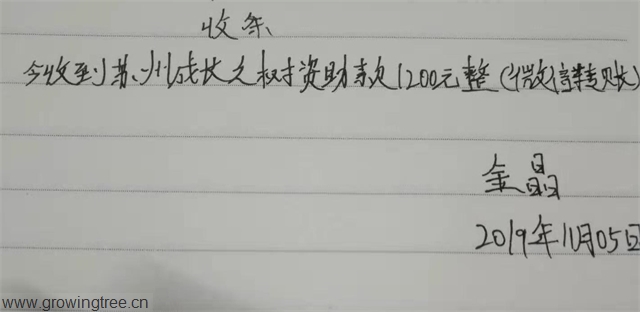 收条
今收到苏州成长之树资助款1200元整(微信转账)
金晶
2019年11月05日
www.growingtree.cn